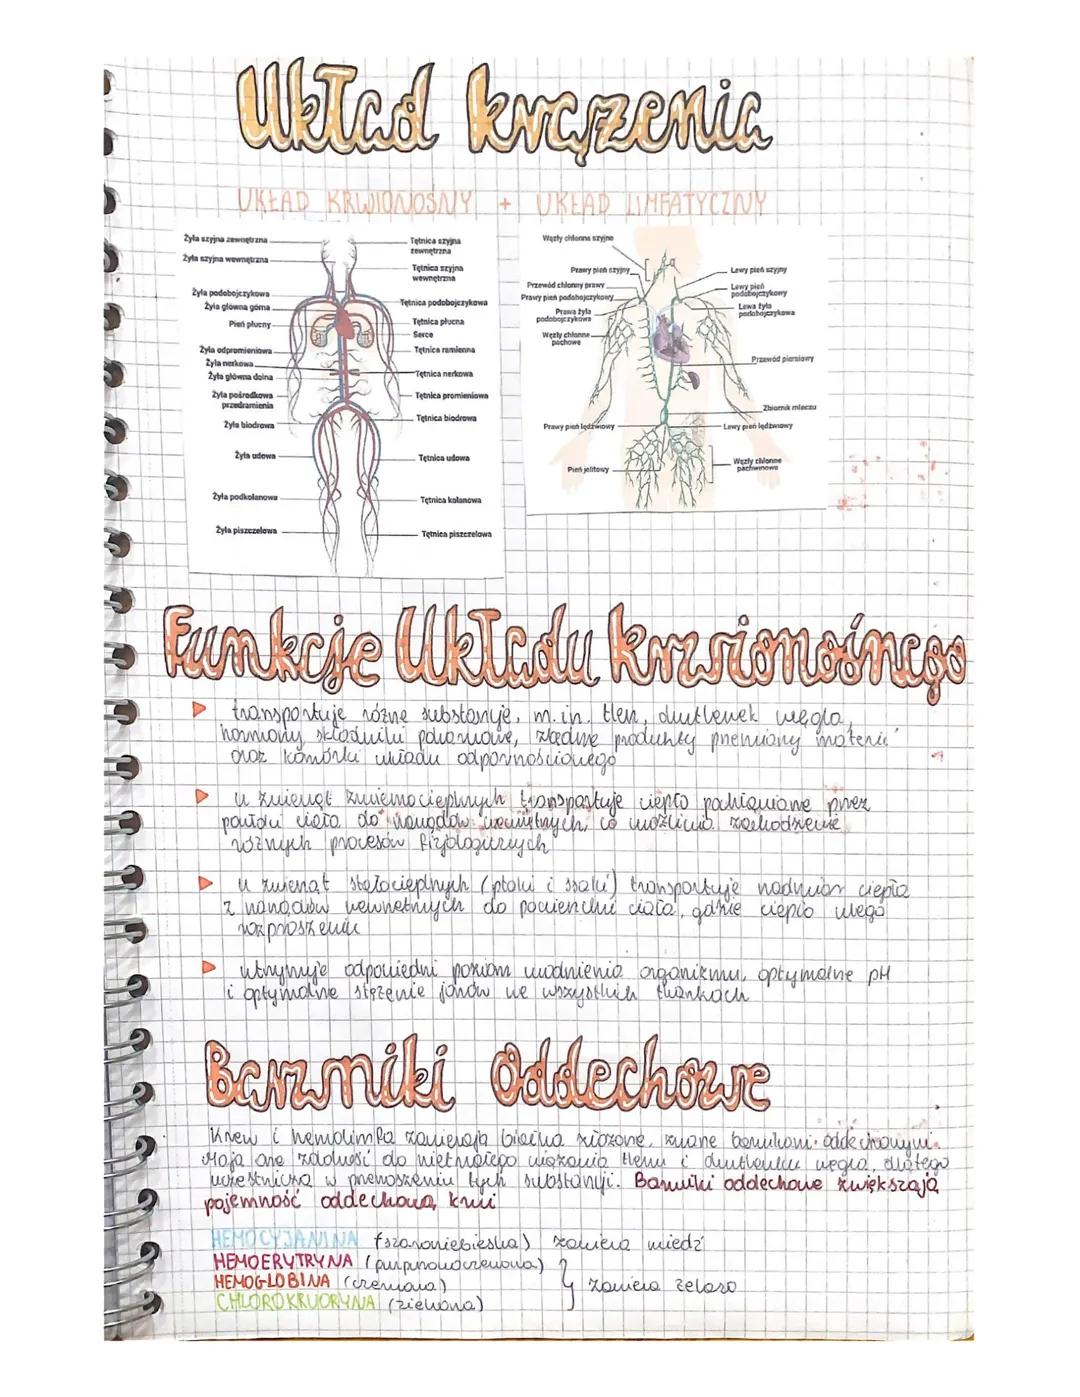 Układ krążenia
UKŁAD KRWIONOŚNY + UKŁAD LIMFATYCZNY
Żyła szyjna zewnętrzna
Żyła szyjna wewnętrzna
Żyła podobojczykowa
Żyła główna górna
Pień płucny
Żyła odpromieniowa
Żyła nerkowa
Żyła główna dolna
Żyła pośrodkowa
przedramienia
Żyła biodrowa
Żyła udowa
Żyła podkolanowa
Żyła piszczelowa
Tętnica szyjna
zewnętrzna
Tętnica szyjna
wewnętrzna
Tętnica podobojczykowa
Tętnica płucna
Serce
Tętnica ramienna
Tętnica nerkowa
Tętnica promieniowa
Tętnica biodrowa
Tętnica udowa
Tętnica kolanowa
Tętnica piszczelowa
Węzły chłonne szyjne
Prawy pień szyjny
Przewód chłonny prawy
Prawy pień podobojczykowy
Prawa żyła
podobojczykowa
Węzły chłonne
pachowe
Prawy pień lędźwiowy
Pień jelitowy
Lewy pień szyjny
Lewy pień
podobojczykowy
Lewa żyła
podobojczykowa
Przewód piersiowy
Zbiornik mleczu
Lewy pień lędźwiowy
Węzły chłonne
pachwinowe
Funkcje Układu krwionośnego
transportuje różne substancje, m.in. tlen, dwutlenek węgla,
hormony składniki pokarmowe, zbędne produkty przemiany materii
oraz komórki układu odpornościowego
u zwierząt zmiennocieplnych transportuje ciepło pochłaniane przez
powłoki ciała do narządów wewnętrznych, co umożliwia zachodzenie
różnych procesów fizjologicznych
u zwierząt stałocieplnych (ptaki i ssaki) transportuje nadmiar ciepła
z narządów wewnętrznych do powierzchni ciała, gdzie ciepło ulega
rozproszeniu
utrzymuje odpowiedni poziom uwodnienia organizmu, optymalne pH
i optymalne stężenie jonów we wszystkich tkankach
Barwniki Oddechowe
Krew i hemolimfa zawierają białka złożone, zwane barwnikami oddechowymi.
Mają one zdolność do nietrwałego wiązania tlenu i dwutlenku węgla, dlatego
uczestniczą w przenoszeniu tych substancji. Barwniki oddechowe zwiększają
pojemność oddechową krwi
HEMOCYJANINA (szaroniebieska) zawiera miedź
HEMOERYTRYNA (purpurowoczerwona)
HEMOGLOBINA (czerwona) } zawiera żelazo
CHLOROKRUORYNA (zielona)